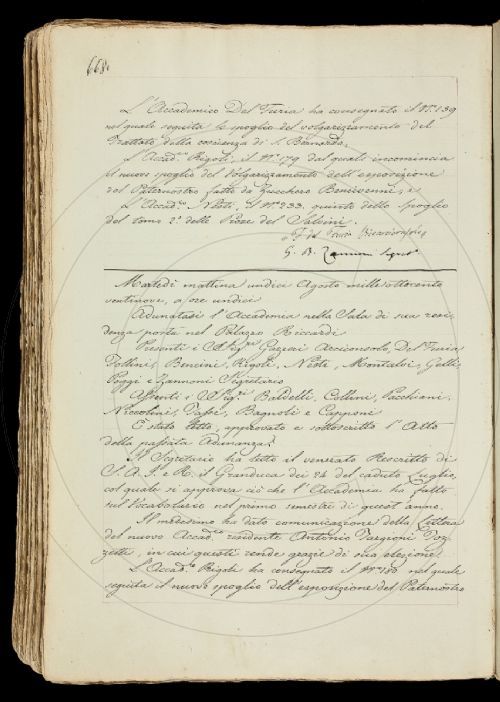 668.
L'Accademico Del Furia ha consegnato il N.º 139
nel quale seguita lo spoglio del volgarizzamento del
Trattato della coscienza di S. Bernardo.
L'Accad.co Rigoli, il N.º 179 dal quale incomincia
il nuovo spoglio del Volgarizzamento dell'esposizione
del Paternostro fatto da Zucchero Bencivenni; e
L'Accad.co Nesti, il N.º 233. quinto dello spoglio
del tomo 2.º delle Prose del Salvini.
F. del Furia
G. B. Zannoni Segret.º
Martedì mattina undici Agosto mille ottocento
ventinove, a ore undici
Adunatasi l'Accademia nella Sala di sua resi-
denza posta nel Palazzo Riccardi
Presenti i Sig.ri Gazzeri Arciconsolo, Del Furia
Follini, Bencini, Rigoli, Nesti, Montalvi, Gelli,
Poggi e Zannoni Segretario
Assenti i Sig.ri Baldelli, Collini, Pacchiani,
Niccolini, Tassi, Bagnoli e Capponi
È stato letto, approvato e sottoscritto l'Atto
della passata Adunanza.
Il Segretario ha letto il venerato Rescritto di
S. A. I. e R. il Granduca dei 24 del caduto Luglio,
col quale si approva ciò che l'Accademia ha fatto
sul Vocabolario nel primo semestre di quest'anno.
Il medesimo ha dato comunicazione della Lettera
del nuovo Accad.co residente Antonio Targioni Toz-
zetti, in cui questi rende grazie di sua elezione.
L'Accad.co Rigoli ha consegnato il N.º 180 nel quale
seguita il nuovo spoglio dell'esposizione del Paternostro